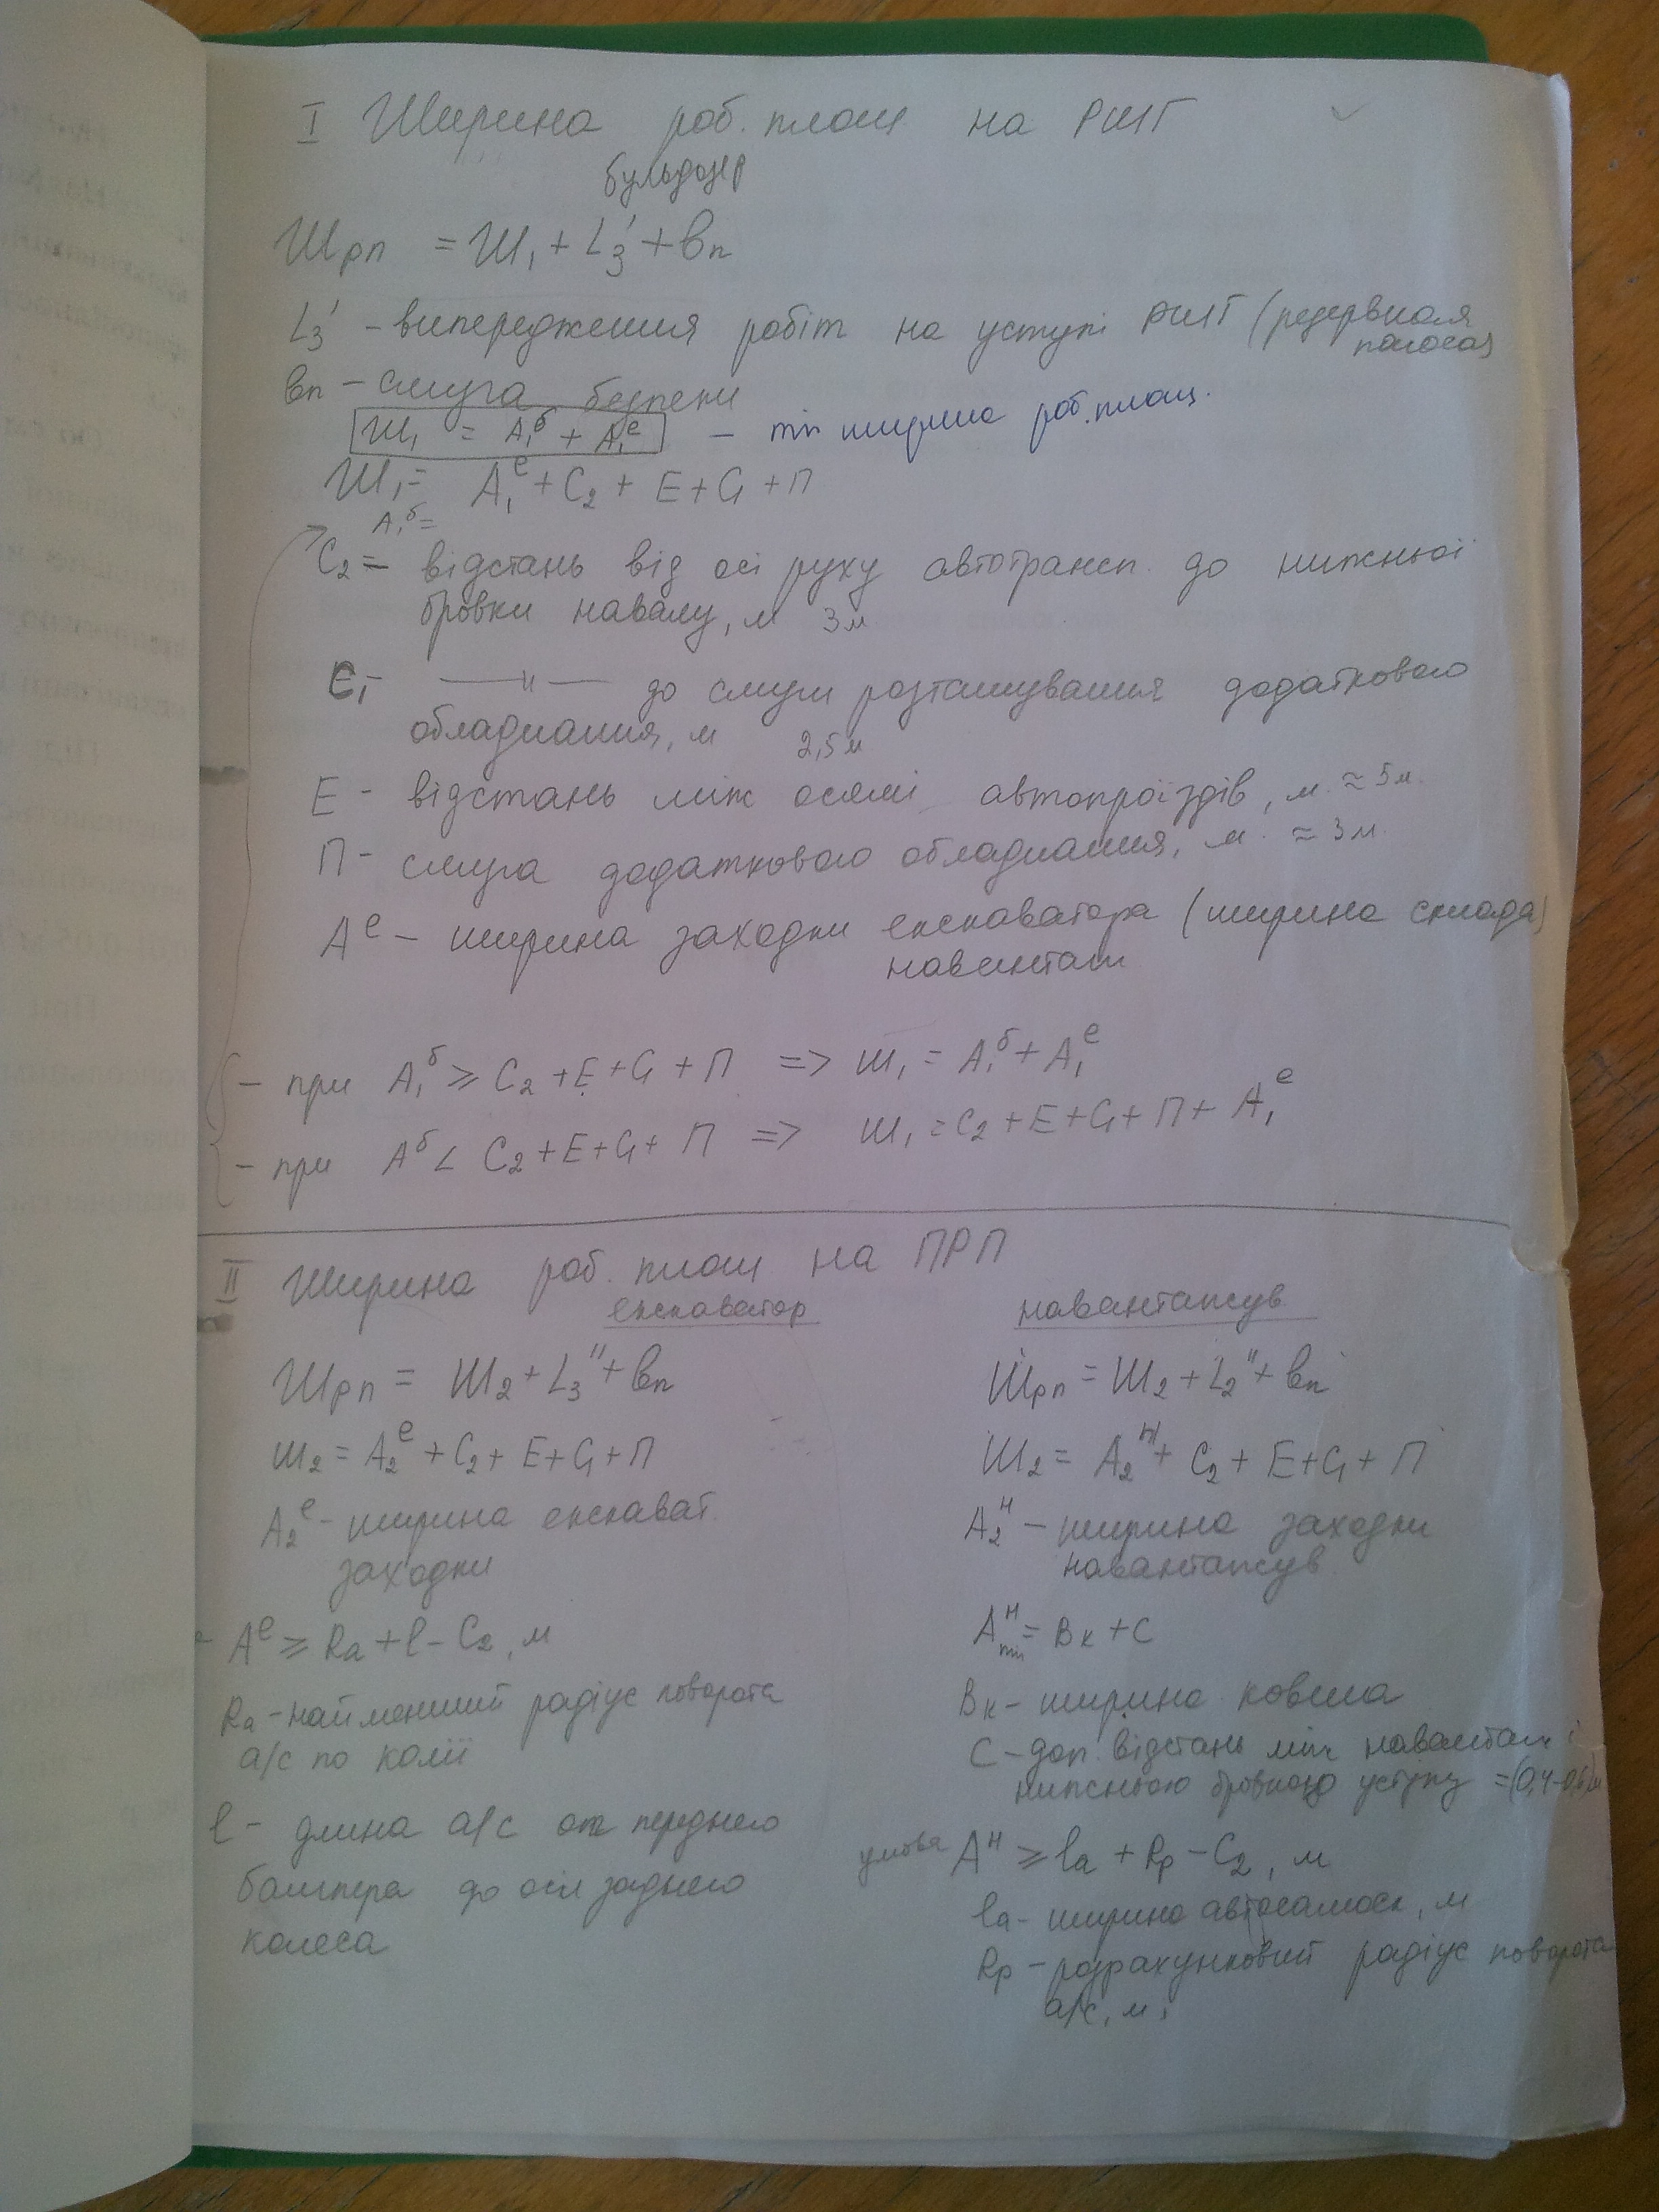 I Ширина роб. площ на РШГ
бульдозер
Шрп = Ш₁ + L₃' + вп
L₃' – випередження робіт на уступі РШГ (резервная полоса)
вп – смуга безпеки
Ш₁ = А₁ᵟ + А₁ᵉ – min ширина роб. площ.
Ш₁ = А₁ᵉ + С₂ + Е + С₁ + П
А₁ᵟ =
С₂ = відстань від осі руху автотрансп. до нижньої
бровки навалу, м 3м
С₁ — " — до смуги розташування додаткового
обладнання, м 2,5м
Е - відстань між осями автопроїздів, м ≈ 5м.
П - смуга додаткового обладнання, м ≈ 3м.
Аᵉ – ширина заходки екскаватора (ширина склада)
навантаж
– при А₁ᵟ ≥ С₂ + Е + С₁ + П => Ш₁ = А₁ᵟ + А₁ᵉ
– при Аᵟ < С₂ + Е + С₁ + П => Ш₁ = С₂ + Е + С₁ + П + А₁ᵉ
II Ширина роб. площ на ПРП
екскаватор
Шрп = Ш₂ + L₃'' + вп
Ш₂ = А₂ᵉ + С₂ + Е + С₁ + П
А₂ᵉ - ширина екскават.
заходки
Аᵉ ≥ Rа + l – С₂, м
Rа – найменший радіус поворота
а/с по колії
l - длина а/с от переднего
бампера до оси заднего
колеса
навантажув
Шрп = Ш₂ + L₂'' + вп
Ш₂ = А₂ᴴ + С₂ + Е + С₁ + П
А₂ᴴ – ширина заходки
навантажув
Аᴴmin = Вк + С
Вк – ширина ковша
С – доп. відстань між навантаж і
нижньою бровкою уступу = (0,4-0,6)м
умова Аᴴ ≥ lа + Rр – С₂, м
lа - ширина автосамоск, м
Rр – розрахунковий радіус поворота
а/с, м